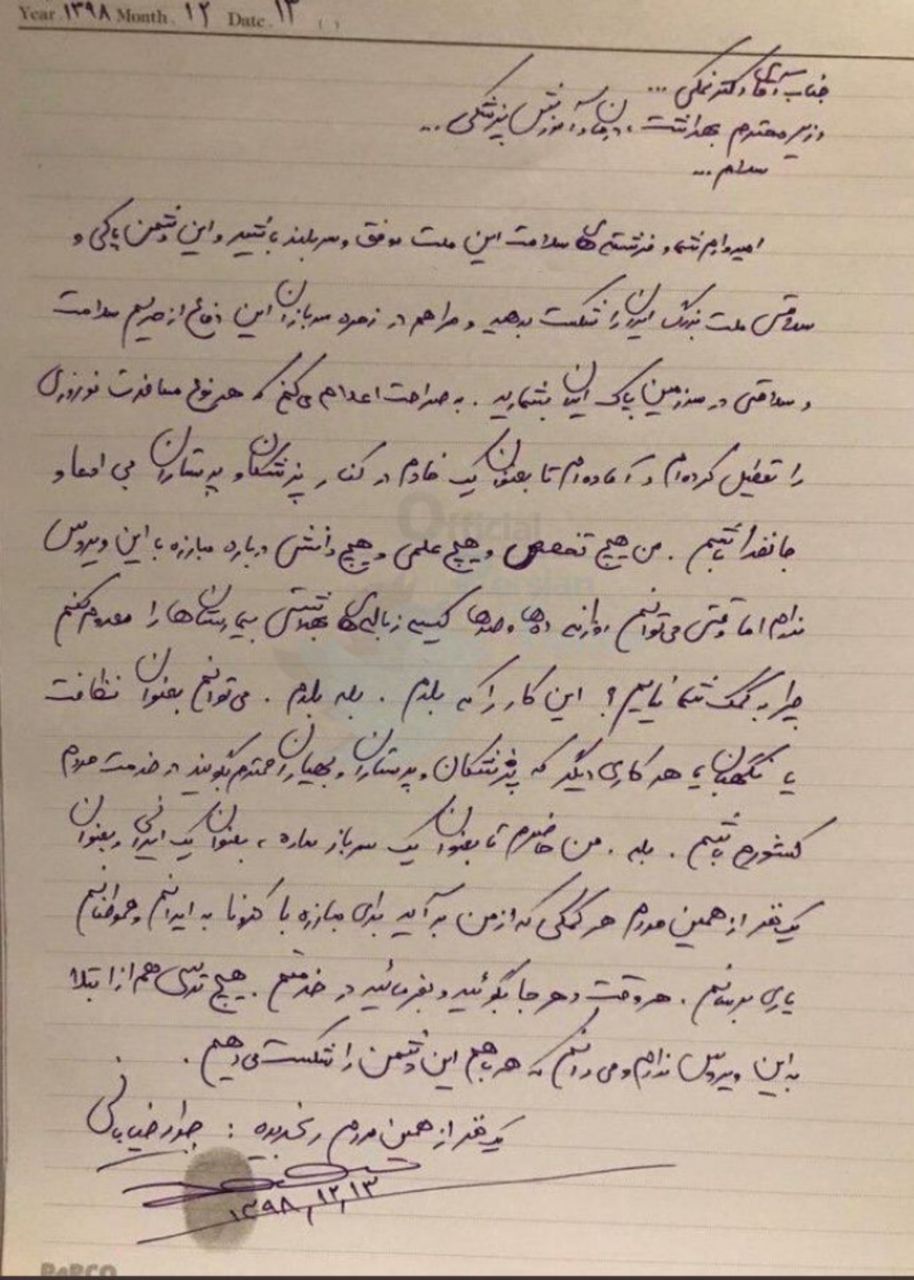 Year ۱۳۹۸ Month. ۱۲ Date. ۱۳ ( )
جناب آقای دکتر نمکی ...
وزیر محترم بهداشت، درمان و آموزش پزشکی ...
سلام ...
امیدوارم شما و فرشته‌های سلامت این ملت موفق و سربلند باشید و این دشمن پاکی و
سلامتی ملت بزرگ ایران را شکست بدهید و مرا هم در زمره سربازان این دفاع از حریم سلامت
و سلامتی در سرزمین پاک ایران بشمارید . به صراحت اعلام می‌کنم که هر نوع مسافرت نوروزی
را تعطیل کرده‌ام و آماده‌ام تا بعنوان یک خادم در کنار پزشکان و پرستاران بی ادعا و
جانفدا باشم . من هیچ تخصص و هیچ علمی و هیچ دانشی درباره مبارزه با این ویروس
ندارم اما وقتی می‌توانم روزانه ده‌ها و صدها کیسه زباله‌های بهداشتی بیمارستان‌ها را معدوم کنم
چرا به کمک شما نیایم ؟! این کار را که بلدم . بله بلدم . می‌توانم بعنوان نظافت
یا نگهبان یا هر کاری دیگر که پزشکان و پرستاران و بهیاران محترم بگویند در خدمت مردم
کشورم باشم . بله . من حاضرم تا بعنوان یک سرباز ساده ، بعنوان یک ایرانی و بعنوان
یک نفر از همین مردم هر کمکی که از من بر آید برای مبارزه با کرونا به ایرانم و هموطنانم
یاری برسانم . هر وقت و هر جا بگوئید و بفرمائید در خدمتم . هیچ ترسی هم از ابتلا
به این ویروس ندارم و می‌دانم که همه باهم این دشمن را شکست می‌دهیم .
یک نفر از همین مردم رنجدیده : جواد خیابانی
۱۳۹۸,۱۲,۱۳
Official
Persian
PAPCO